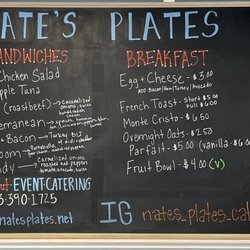 ATE'S PLATES
ANDWICHES
Chicken Salad
pple Tuna
(roastbeef) → caramelized
onions, swiss
rranean →
Bacon → Turkey BLT
oom →
ndy → Caramelized onions,
roasted red peppers
tomato, avocado, swiss
out EVENT CATERING
5-390-1725
natesplates.net
BREAKFAST
Egg + Cheese - $3.00
ADD Bacon/Ham/Turkey/Avocado
French Toast - short $5.00
full $6.00
Monte Cristo - $6.50
Overnight Oats - $2.50
Parfait - (vanilla) - $5.00
Fruit Bowl - $4.00 (v)
IG nates_plates_cal